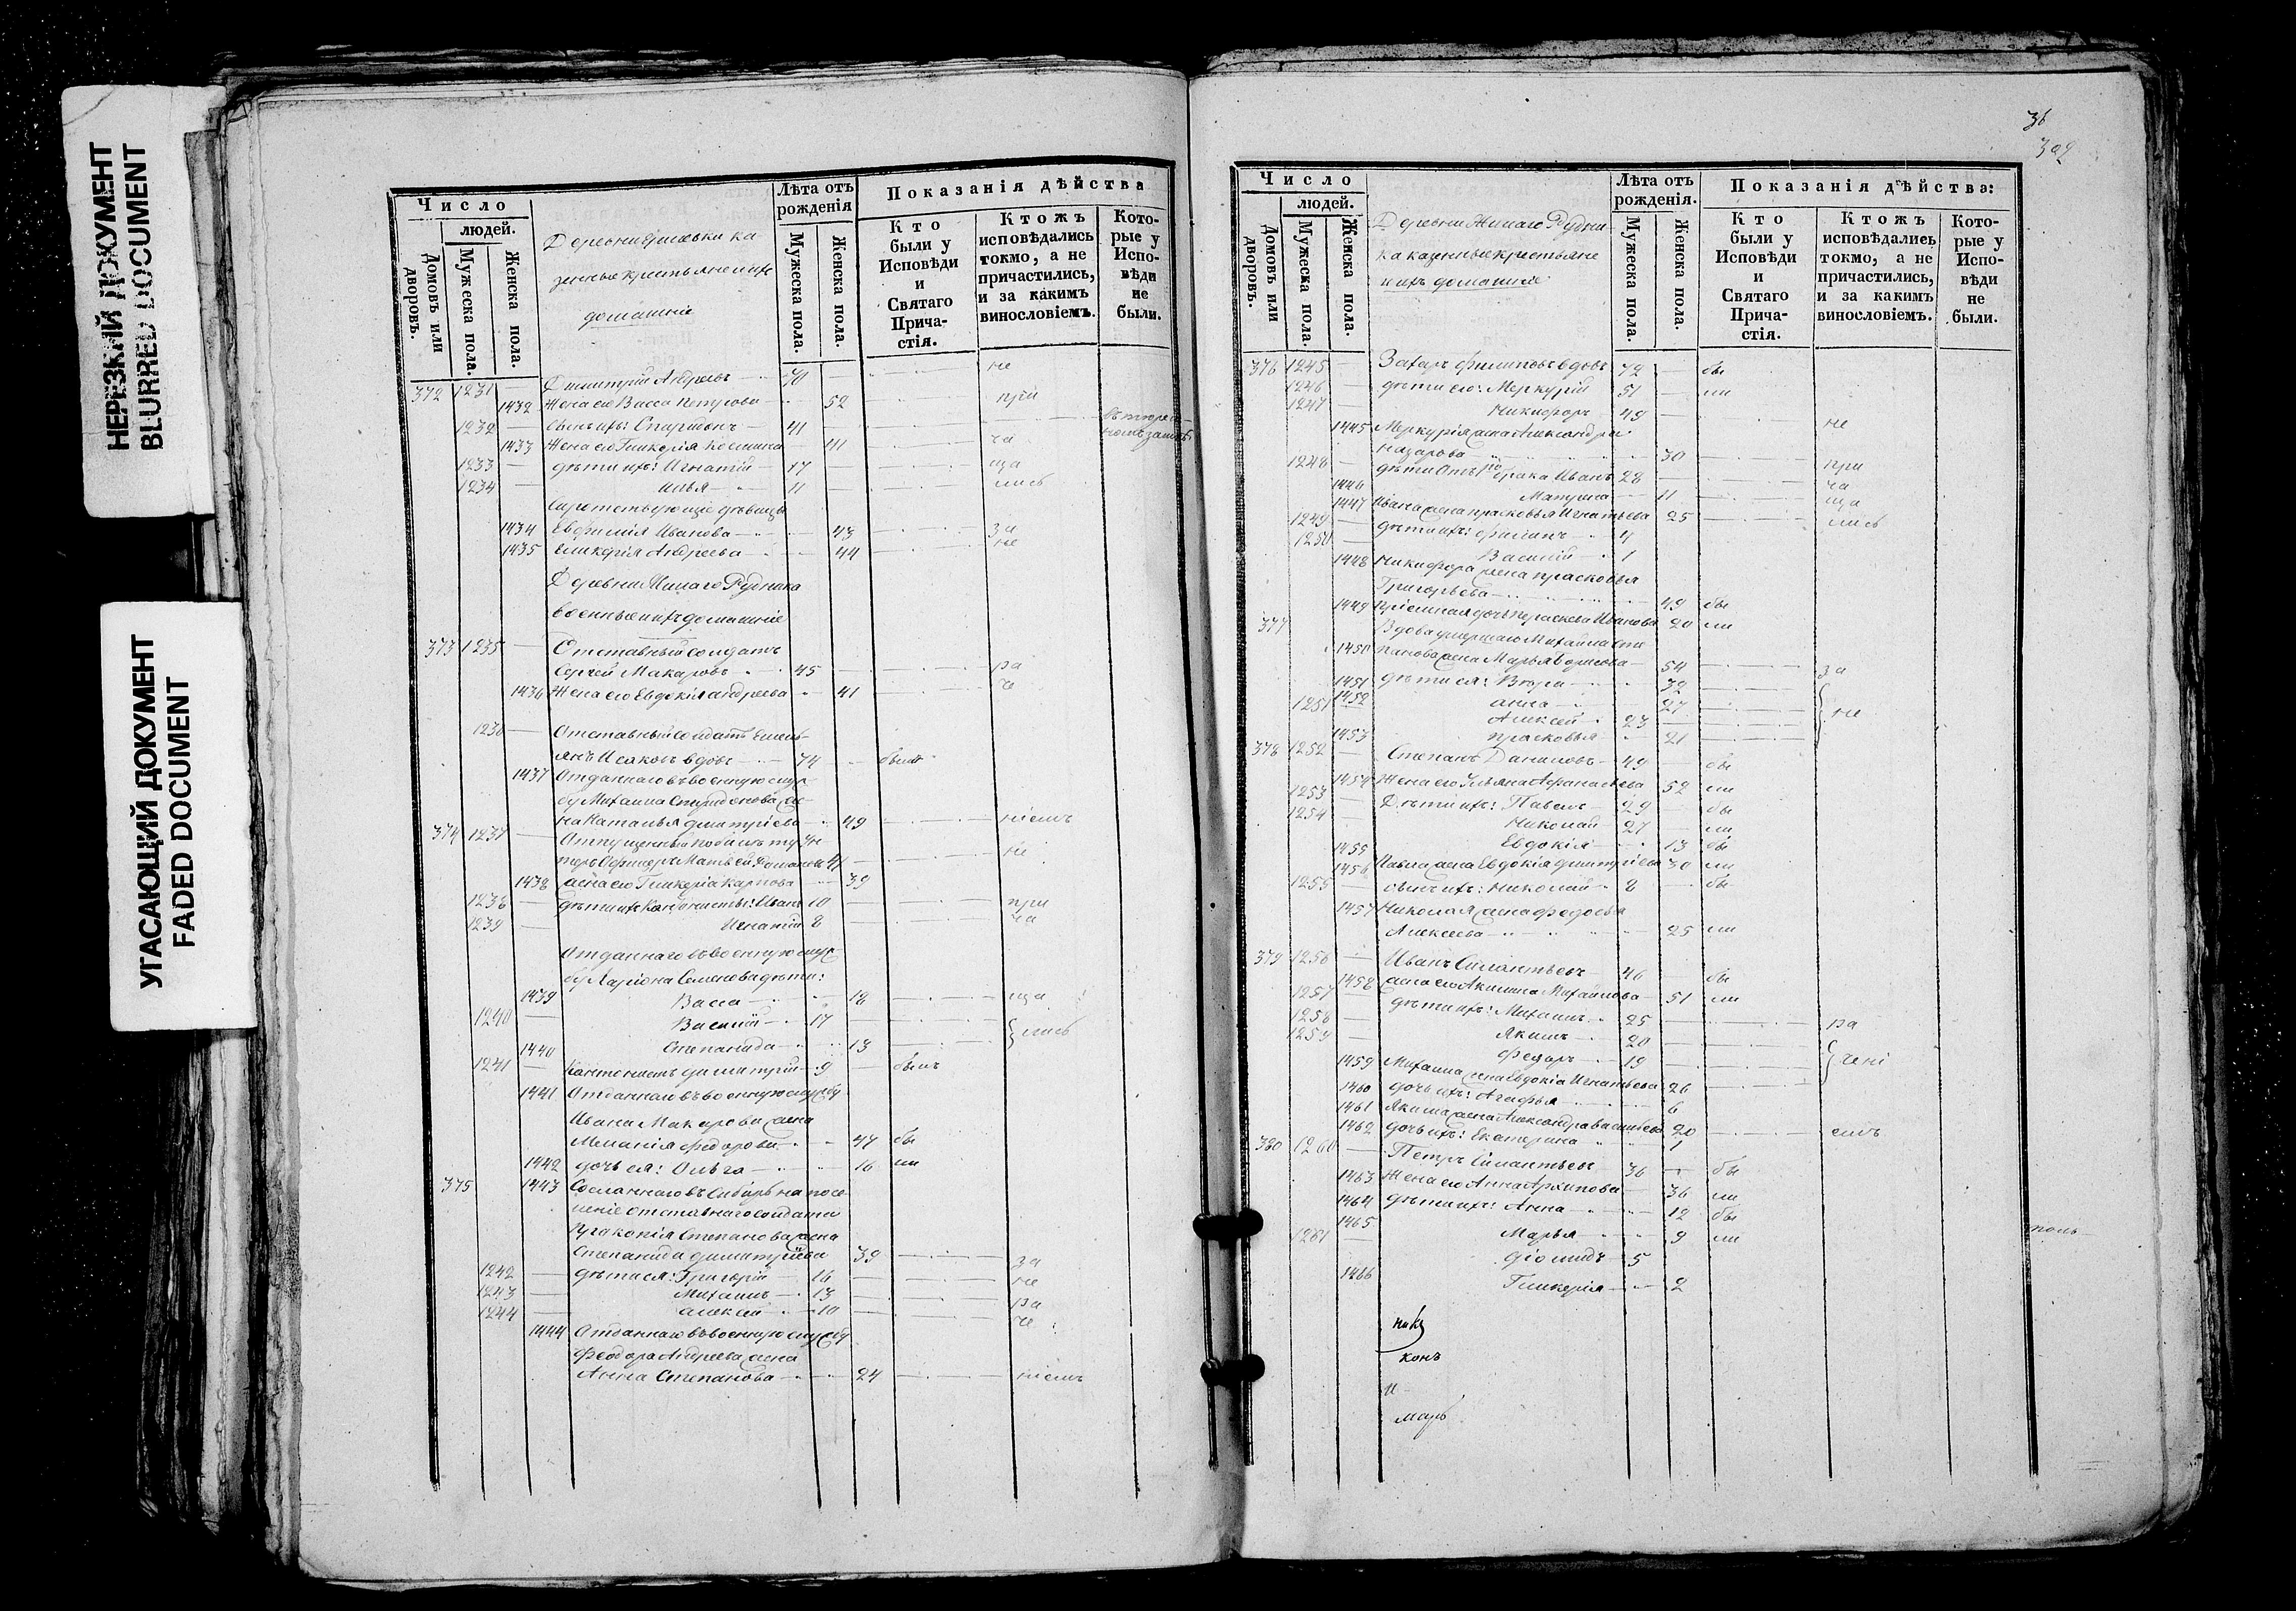 НЕРЕЗКИЙ ДОКУМЕНТ
BLURRED DOCUMENT
УГАСАЮЩИЙ ДОКУМЕНТ
FADED DOCUMENT
Число
людей.
Домовъ или дворовъ.
Мужеска пола.
Женска пола.
казенные крестьяне и ихъ
домашніе
Лѣта отъ рожденія
Мужеска пола.
Женска пола.
Показанія дѣйства
Кто были у Исповѣди и Святаго Причастія.
Ктожъ исповѣдались токмо, а не причастились, и за какимъ винословіемъ.
Которые у Исповѣди не были.
372 1231 — Димитрій Андреевъ 70 не
1432 Жена его Васса Петрова 52 при
1232 — сынъ ихъ: Спиридонъ 41
1433 Жена его Гликерія Козмина 41 ча
1233 — дѣти ихъ: Игнатій 17 ща
1234 — Илья 11 лись
1434 Евфимія Иванова 43 за
1435 Гликерія Андреева 44 не
военные и ихъ домашніе
373 1235 — Отставный солдатъ
Сергей Макаровъ 45 ра
1436 Жена его Евдокія Андреева 41 че
1236 — Отставный солдатъ Емель-
янъ Исаковъ вдовъ 74 былъ
1437 Отданнаго въ военную служ-
бу Михаила Спиридонова же-
на Наталья Димитріева 49 ніемъ
374 1237 —
1438 жена его Гликерія Карпова 39
1238 — дѣти ихъ кантонисты: Иванъ 10 при
1239 — Игнатій 8 ча
Отданнаго въ военную служ-
бу Лариона Семенова дѣти:
1439 Васса 18 ща
1240 — Василій 17 лись
1440 Степанида 13
1241 — Кантонистъ Димитрій 9 былъ
1441 Отданнаго въ военную службу
Ивана Макарова жена
Меланія Федорова 47 бы
1442 дочь ея: Ольга 16 ли
375 1443 Сосланнаго въ Сибирь на посе-
леніе отставнаго солдата
Прокопія Степанова жена
Степанида Димитріева 39 за
1242 — дѣти ея: Григорій 16 не
1243 — Михаилъ 13 ра
1244 — Алексѣй 10 че
1444 Отданнаго въ военную службу
Феодора Андреева жена
Анна Степанова 24 ніемъ
36
Число
людей.
Домовъ или дворовъ.
Мужеска пола.
Женска пола.
ка казенные крестьяне
и ихъ домашніе
Лѣта отъ рожденія.
Мужеска пола.
Женска пола.
Показанія дѣйства:
Кто были у Исповѣди и Святаго Причастія.
Ктожъ исповѣдались токмо, а не причастились, и за какимъ винословіемъ.
Которые у Исповѣди не были.
376 1245 — Захаръ Филиповъ вдовъ 72 бы
1246 — дѣти его: Меркурій 51 ли
1247 — Никифоръ 49
1445 Меркурія жена Александра не
Назарова 30
1248 — брака Иванъ 28 при
1446 Матрена 11 ча
1447 Ивана жена Прасковья Игнатьева 25 ща
1249 — дѣти ихъ: Филипъ 4 лись
1250 — Василій 1
1448 Никифора жена Прасковья
Григорьева 49 бы
1449 Пріемная дочь Параскева Иванова 20 ли
377 Вдова умершаго Михайла Сте
1450 панова жена Марья Борисова 54 за
1451 дѣти ея: Вѣра 32
1452 Анна 27 не
1251 Алексѣй 23
1453 Прасковья 21
378 1252 — Степанъ Даниловъ 49 бы
1454 Жена его Ульяна Афанасьева 52 ли
1253 — Дѣти ихъ: Павелъ 29 бы
1254 — Николай 27 ли
1455 Евдокія 13 бы
1456 Павла жена Евдокія Димитріева 30 ли
1255 — сынъ ихъ: Николай 8 бы
1457 Николая жена Федосья
Алексеева 25 ли
379 1256 — Иванъ Силантьевъ 46 бы
1458 жена его Акилина Михайлова 51 ли
1257 — дѣти ихъ: Михаилъ 25 ра
1258 — Якимъ 20
1259 — Федоръ 19 чені
1459 Михаила жена Евдокія Игнатьева 26
1460 дочь ихъ: Агафья 6
1461 Якима жена Александра Васильева 20 емъ
1462 дочь ихъ: Екатерина 1
380 1260 — Петръ Силантьевъ 36 бы
1463 Жена его Анна Архипова 36 ли
1464 дѣти ихъ: Анна 12 бы
1465 Марья 9 ли
1261 — Діомидъ 5
1466 Гликерія 2
конъ
и
марь